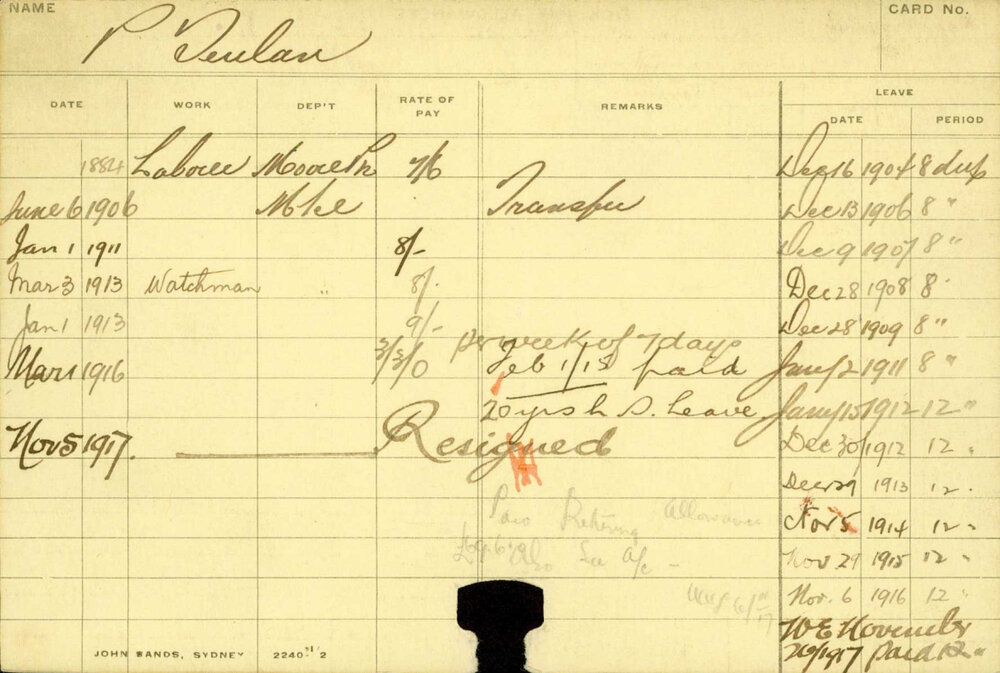 NAME
CARD No.
P
DATE WORK DEP'T RATE OF PAY REMARKS LEAVE
DATE PERIOD
1884 Labourer 7/6 Dec 16 1904 8 days
June 6 1906 Transfer Dec 13 1906 8 "
Jan 1 1911 8/- Dec 9 1907 8 "
Mar 3 1913 Watchman " 8/- Dec 28 1908 8 "
Jan 1 1913 9/- Dec 28 1909 8 "
per week of 7 days
Mar 1 1916 3/3/0 Feb 1/18 paid Jany 2 1911 8 "
20 yrs L. S. Leave Jany 15 1912 12 "
Nov 5 1917. Resigned Dec 30 1912 12 "
Decr 29 1913 12 "
Paid Retiring Allowance Nov 5 1914 12 "
Nov 29 1915 12 "
Nov. 6 1916 12 "
W E November
1917 paid 12 "
JOHN SANDS, SYDNEY 2240